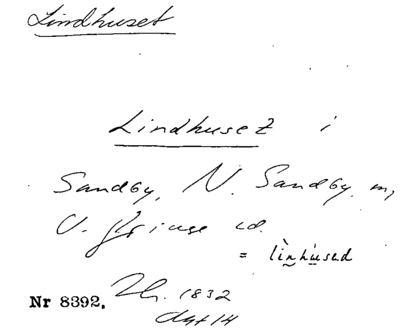 Lindhuset
Lindhuset i
Sandby, N. Sandby. sn,
V. Göinge hd.
= lìnhúsəd
Nr 8392. Th. 1832